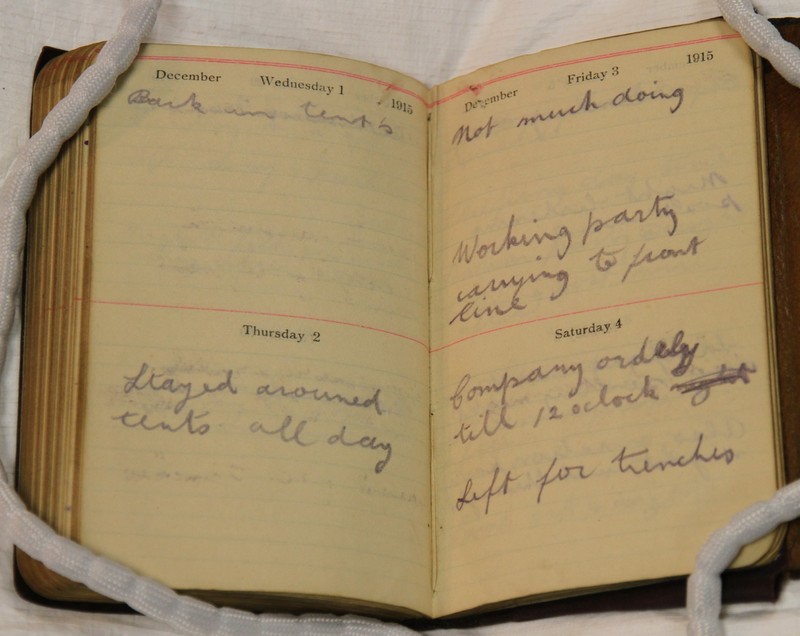 December Wednesday 1 1915
Back in tents
Thursday 2
Stayed arouned
tents all day
December Friday 3 1915
Not much doing
Working party
carrying to front
line
Saturday 4
Company ordely
till 12 oclock
Left for trenches